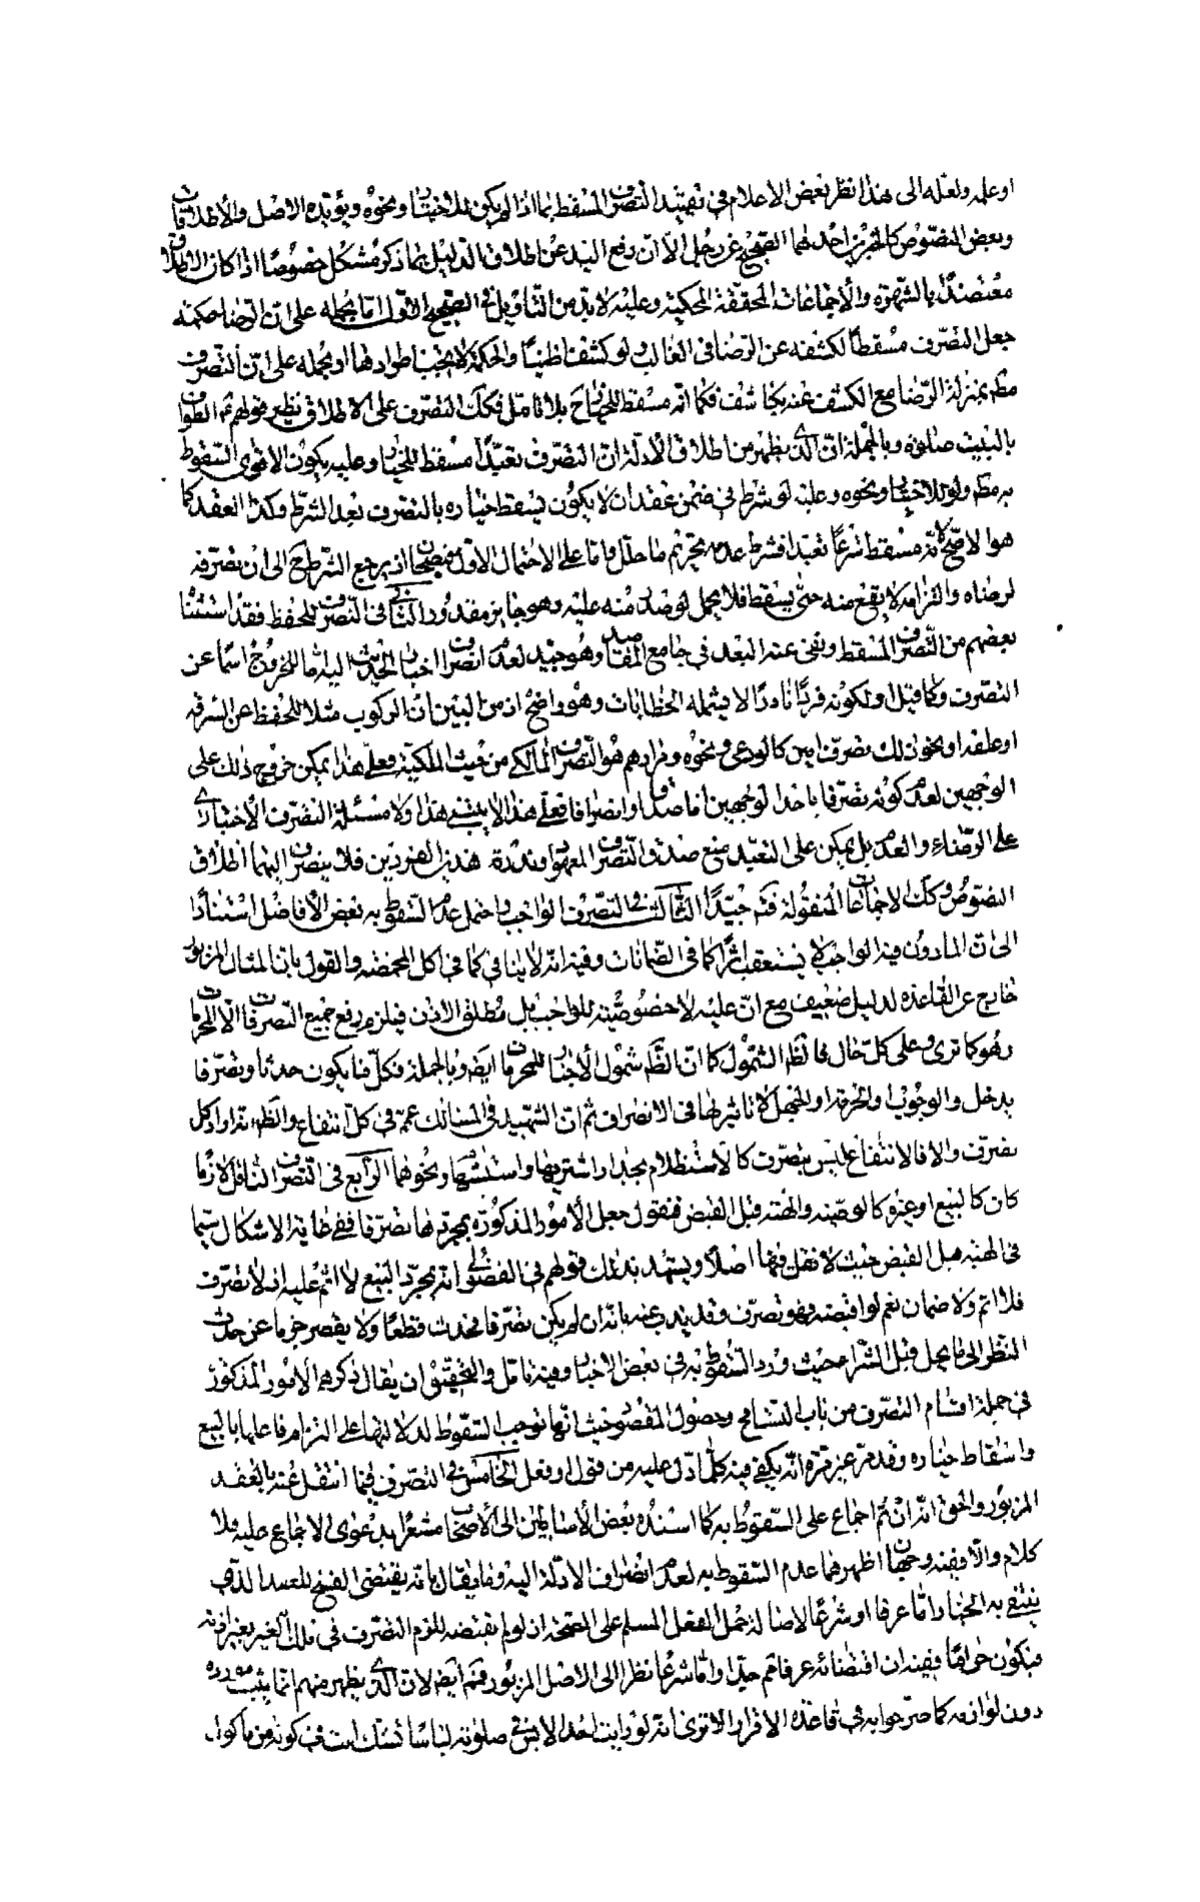 او علمه ولعله الى هذا نظر بعض الاعلام في تقييد التصرف المسقط بما اذا لم يكن للاختبار ونحوه ويؤيده الاصل والاطلاقات
وبعض النصوص كالخبرين احدهما الصحيح عن رجل الا ان رفع اليد عن اطلاق الدليل بما ذكر مشكل خصوصا اذا كان الاطلاق
معتضدا بالشهرة والاجماعات المحققة المحكية وعليه لا بد من التاويل في الصحيح الاول اما بحمله على ان الرضا حكمة
جعل التصرف مسقطا لكشفه عن الرضا في الغالب ولو كشفا ظنيا والحكمة لا يجب اطرادها او بحمله على ان التصرف
مط بمنزلة الرضا مع الكشف عنه بكاشف فكما انه مسقط للخيار ح بلا تامل فكك التصرف على الاطلاق نظير قولهم ع الطواف
بالبيت صلوة وبالجملة ان الذي يظهر من اطلاق الادلة ان التصرف تعبدا مسقط للخيار وعليه يكون الاقوى السقوط
به مط ولو للاختبار ونحوه وعليه لو شرط في ضمن عقد ان لا يكون يسقط خياره بالتصرف بعد الشرط وكذا العقد كما
هو الاصح لانه مسقط شرعا تعبدا فشرط عدمه محرم ما حلل واما على الاحتمال الاول فيصح اذ يرجع الشرط ح الى ان تصرفه
لرضاه والتزامه لا يقع منه حتى يسقط فلا يحمل لو صدر منه عليه وهو جايز مقدور الثاني في التصرف للحفظ فقد استثنا
بعضهم من التصرف المسقط ونفى عنه البعد في جامع المقاصد وهو جيد لعدم انصراف اخبار الحديث اليه اما للخروج اسما عن
التصرف كما قيل او لكونه فردا نادرا لا يشمله الخطابات وهو واضح اذ من البين ان الركوب مثلا للحفظ عن السرقة
او علفه او نحو ذلك تصرف امين كالودعي ونحوه ومرادهم هو التصرف المالكي من حيث الملكية وعلى هذا يمكن خروج ذلك على
الوجهين لعدم كونه تصرفا باحد الوجهين اما صدقا او انصرافا فعلى هذا لا يبتني هذا ولا مسئلة التصرف الاختباري
على الرضاء والعدم بل يمكن على التعبد منع صدق التصرف المعهود وندرة هذين الفردين فلا ينصرف اليهما اطلاق
النصوص وكك الاجماعات المنقولة فتم جيدا الثالث في التصرف الواجب واحتمل عدم السقوط به بعض الافاضل استنادا
الى ان الماذون فيه الواجب لا يستعقب اثرا كما في الضمانات وفيه انه لا ينافي كما في اكل المخمصة والقول بان المثال المزبور
خارج عن القاعدة لدليل ضعيف مع ان عليه لا خصوصية للواجب بل مطلق الاذن فيلزم رفع جميع التصرفات الا المحرمات
وهو كما ترى وعلى كل حال فالظ الشمول كما ان الظ شمول الاخبار للمحرمات ايض وبالجملة فكلما يكون حدثا وتصرفا
يدخل والوجوب او الحرمة او الجهل لا تاثير لها في الانصراف ثم ان الشهيد في المسالك عمم في كل انتفاع والظ انه اراد كل
تصرف والا فالانتفاع ليس بتصرف كالاستظلام بجدار اشتريها واستنشاقها ونحوهما الرابع في التصرف الناقل لازما
كان كالبيع او غيره كالوصية والهبة قبل القبض فنقول جعل الامور المذكورة بمجردها تصرفا ففي غاية الاشكال سيما
في الهبة قبل القبض حيث لا نقل فيها اصلا ويشهد بذلك قولهم في الفضولي انه بمجرد البيع لا اثم عليه اذ لا تصرف
فلا اثم ولا ضمان نعم لو اقبضه فهو تصرف وقد يذب عنه بانه ان لم يكن تصرفا فحدث قطعا ولا يقصر جزما عن حدث
النظر الى ما يحل قبل الشراء حيث ورد السقوط به في بعض الاخبار وفيه تامل والتحقيق ان يقال ذكرهم الامور المذكورة
في جملة اقسام التصرف من باب التسامح وحصول المقصود حيث انها توجب السقوط لدلالتها على التزام فاعلها بالبيع
واسقاط خياره وقد مر غير مرة انه يكفي فيه كلما دل عليه من قول او فعل الخامس في التصرف فيما انتقل عنه بالعقد
المزبور والحق انه ان تم اجماع على السقوط به كما اسنده بعض الاساطين الى الاصحاب مشعرا بدعوى الاجماع عليه فلا
كلام والا ففيه وجهان اظهرهما عدم السقوط به لعدم انصراف الادلة اليه وما يقال بانه يقتضي الفسخ للعقد الذي
ينتفي به الخيار اما عرفا او شرعا لاصالة حمل الفعل المسلم على الصحة اذ لو لم يقتضه للزم التصرف في ملك الغير بغير اذنه
فيكون حراما ففيه ان اقتضائه عرفا تم جيدا واما شرعا نظرا الى الاصل المزبور فتم ايض لان الذي يظهر منهم انما يثبت مورده
دون لوازمه كما صرحوا به في قاعدة الاقرار الا ترى انه لو رايت احدا لابس في صلوته لباسا تشك انت في كونه من ماكول